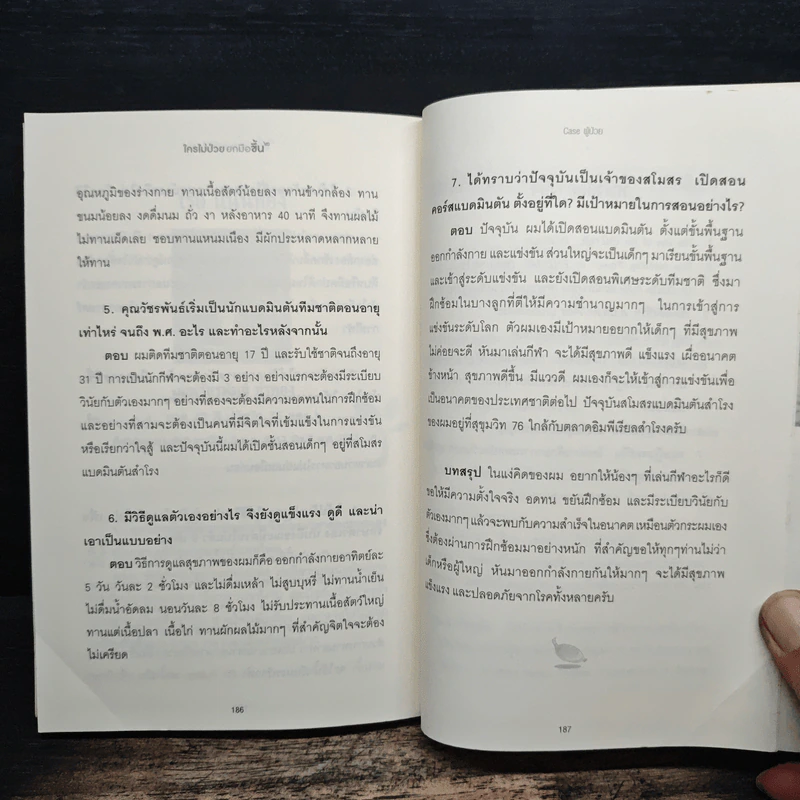 ใครไม่ป่วยยกมือขึ้น
อุณหภูมิของร่างกาย ทานเนื้อสัตว์น้อยลง ทานข้าวกล้อง ทาน
ขนมน้อยลง งดดื่มนม ถั่ว งา หลังอาหาร 40 นาที จึงทานผลไม้
ไม่ทานเผ็ดเลย ชอบทานแหนมเนือง มีผักประหลาดหลากหลาย
ให้ทาน
5. คุณวัชรพันธ์เริ่มเป็นนักแบดมินตันทีมชาติตอนอายุ
เท่าไหร่ จนถึง พ.ศ. อะไร และทำอะไรหลังจากนั้น
ตอบ ผมติดทีมชาติตอนอายุ 17 ปี และรับใช้ชาติจนถึงอายุ
31 ปี การเป็นนักกีฬาจะต้องมี 3 อย่าง อย่างแรกจะต้องมีระเบียบ
วินัยกับตัวเองมากๆ อย่างที่สองจะต้องมีความอดทนในการฝึกซ้อม
และอย่างที่สามจะต้องเป็นคนที่มีจิตใจที่เข้มแข็งในการแข่งขัน
หรือเรียกว่าใจสู้ และปัจจุบันนี้ผมได้เปิดชั้นสอนเด็กๆ อยู่ที่สโมสร
แบดมินตันสำโรง
6. มีวิธีดูแลตัวเองอย่างไร จึงยังดูแข็งแรง ดูดี และน่า
เอาเป็นแบบอย่าง
ตอบ วิธีการดูแลสุขภาพของผมก็คือ ออกกำลังกายอาทิตย์ละ
5 วัน วันละ 2 ชั่วโมง และไม่ดื่มเหล้า ไม่สูบบุหรี่ ไม่ทานน้ำเย็น
ไม่ดื่มน้ำอัดลม นอนวันละ 8 ชั่วโมง ไม่รับประทานเนื้อสัตว์ใหญ่
ทานแต่เนื้อปลา เนื้อไก่ ทานผักผลไม้มากๆ ที่สำคัญจิตใจจะต้อง
ไม่เครียด
186
Case ผู้ป่วย
7. ได้ทราบว่าปัจจุบันเป็นเจ้าของสโมสร เปิดสอน
คอร์สแบดมินตัน ตั้งอยู่ที่ใด? มีเป้าหมายในการสอนอย่างไร?
ตอบ ปัจจุบัน ผมได้เปิดสอนแบดมินตัน ตั้งแต่ขั้นพื้นฐาน
ออกกำลังกาย และแข่งขัน ส่วนใหญ่จะเป็นเด็กๆ มาเรียนขั้นพื้นฐาน
และเข้าสู่ระดับแข่งขัน และยังเปิดสอนพิเศษระดับทีมชาติ ซึ่งมา
ฝึกซ้อมในบางลูกที่ตีให้มีความชำนาญมากๆ ในการเข้าสู่การ
แข่งขันระดับโลก ตัวผมเองมีเป้าหมายอยากให้เด็กๆ ที่มีสุขภาพ
ไม่ค่อยจะดี หันมาเล่นกีฬา จะได้มีสุขภาพดี แข็งแรง เผื่ออนาคต
ข้างหน้า สุขภาพดีขึ้น มีแววดี ผมเองก็จะให้เข้าสู่การแข่งขันเพื่อ
เป็นอนาคตของประเทศชาติต่อไป ปัจจุบันสโมสรแบดมินตันสำโรง
ของผมอยู่ที่สุขุมวิท 76 ใกล้กับตลาดอิมพีเรียลสำโรงครับ
บทสรุป ในแง่คิดของผม อยากให้น้องๆ ที่เล่นกีฬาอะไรก็ดี
ขอให้มีความตั้งใจจริง อดทน ขยันฝึกซ้อม และมีระเบียบวินัยกับ
ตัวเองมากๆ แล้วจะพบกับความสำเร็จในอนาคต เหมือนตัวกระผมเอง
ซึ่งต้องผ่านการฝึกซ้อมมาอย่างหนัก ที่สำคัญขอให้ทุกๆท่านไม่ว่า
เด็กหรือผู้ใหญ่ หันมาออกกำลังกายกันให้มากๆ จะได้มีสุขภาพ
แข็งแรง และปลอดภัยจากโรคทั้งหลายครับ
187